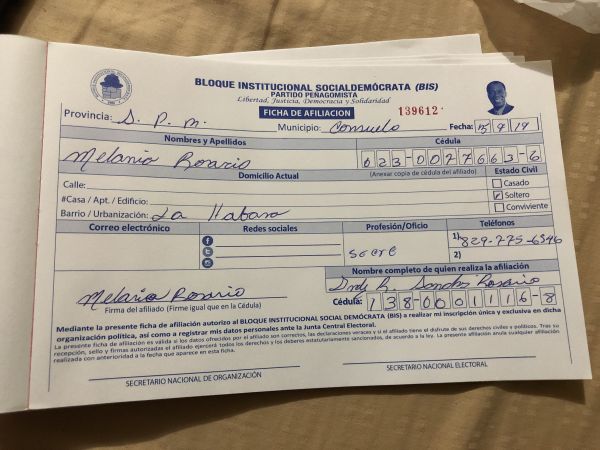 BLOQUE INSTITUCIONAL SOCIALDEMÓCRATA (BIS)
PARTIDO PEÑAGOMISTA
Libertad, Justicia, Democracia y Solidaridad
FICHA DE AFILIACION
139612
Provincia: S. P. M. Municipio: Consuelo Fecha: 15/9/19
Nombres y Apellidos Cédula
Melania Rosario 023-0077663-6
Domicilio Actual (Anexar copia de cédula del afiliado) Estado Civil
Calle: Casado
#Casa / Apt. / Edificio: Soltero
Barrio / Urbanización: La Habana Conviviente
Correo electrónico Redes sociales Profesión/Oficio Teléfonos
secre 1) 829-775-6546
2)
Nombre completo de quien realiza la afiliación
R. Rosario
Melania Rosario
Firma del afiliado (Firme igual que en la Cédula) Cédula: 138-0001116-8
Mediante la presente ficha de afiliación autorizo al BLOQUE INSTITUCIONAL SOCIAL DEMÓCRATA (BIS) a realizar mi inscripción única y exclusiva en dicha
organización política, así como a registrar mis datos personales ante la Junta Central Electoral.
La presente ficha de afiliación es válida si los datos ofrecidos por el afiliado son correctos, las declaraciones veraces y si el afiliado tiene el disfrute de sus derechos civiles y políticos. Tras su
recepción, sello y firmas autorizadas el afiliado ejercerá todos los derechos y los deberes estatutariamente sancionados, de acuerdo a la ley. La presente afiliación anula cualquier afiliación
realizada con anterioridad a la fecha que aparece en esta ficha.
SECRETARIO NACIONAL DE ORGANIZACIÓN SECRETARIO NACIONAL ELECTORAL